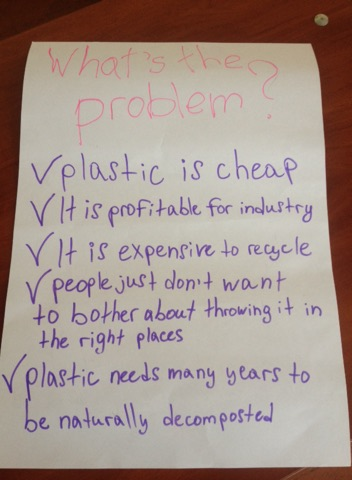 What's the
problem?
√ plastic is cheap
√ It is profitable for industry
√ It is expensive to recycle
√ people just don't want
to bother about throwing it in
the right places
√ plastic needs many years to
be naturally decomposted